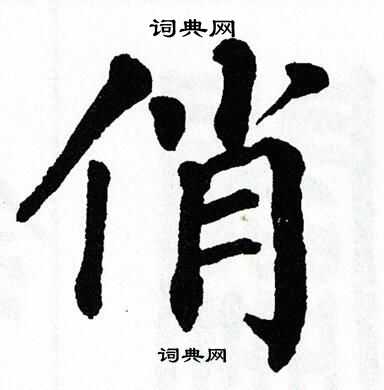 词典网
俏
词典网